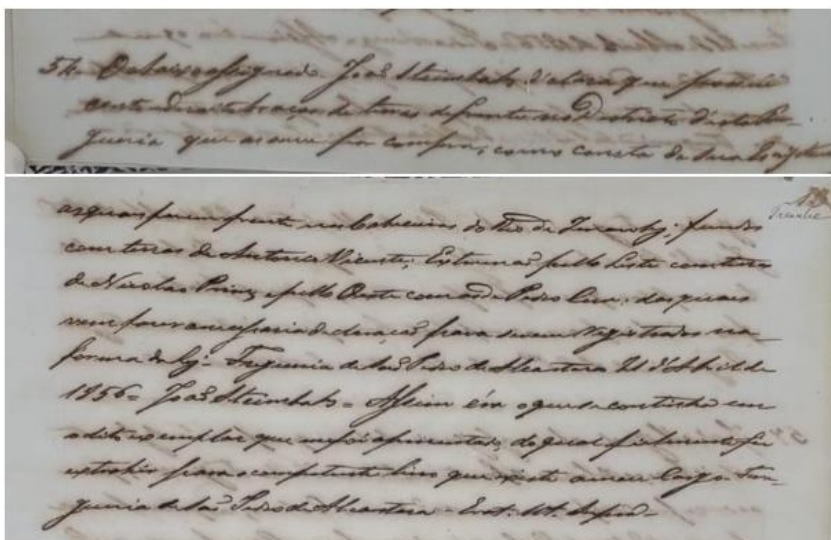 54. O abaixo assignado João Steinbak declara que possue
cento e vinte braças de terras de frente no Districto desta Fre-
guesia que as ouve por compra, como consta da sua Escriptura
as quais fazem frente nas Cabeceiras do Rio de ; fundos
com terras de Antonio Vicente; Estremão pello Leste com terras
de Nicolao Prim, e pello Oeste com as de Pedro ; das quais
vem fazer a mesma declaração para serem registradas na
forma da Ley. Freguesia de São Pedro de Alcantara 21 d'Abril de
1856 = João Steinbak = Assim é o que se continha em
o dito exemplar que me foi aprezentado, do qual fielmente fiz
extrahir para o competente livro que existe a meu Cargo. Fre-
guesia de São Pedro de Alcantara - Erat. Ut. Supra -